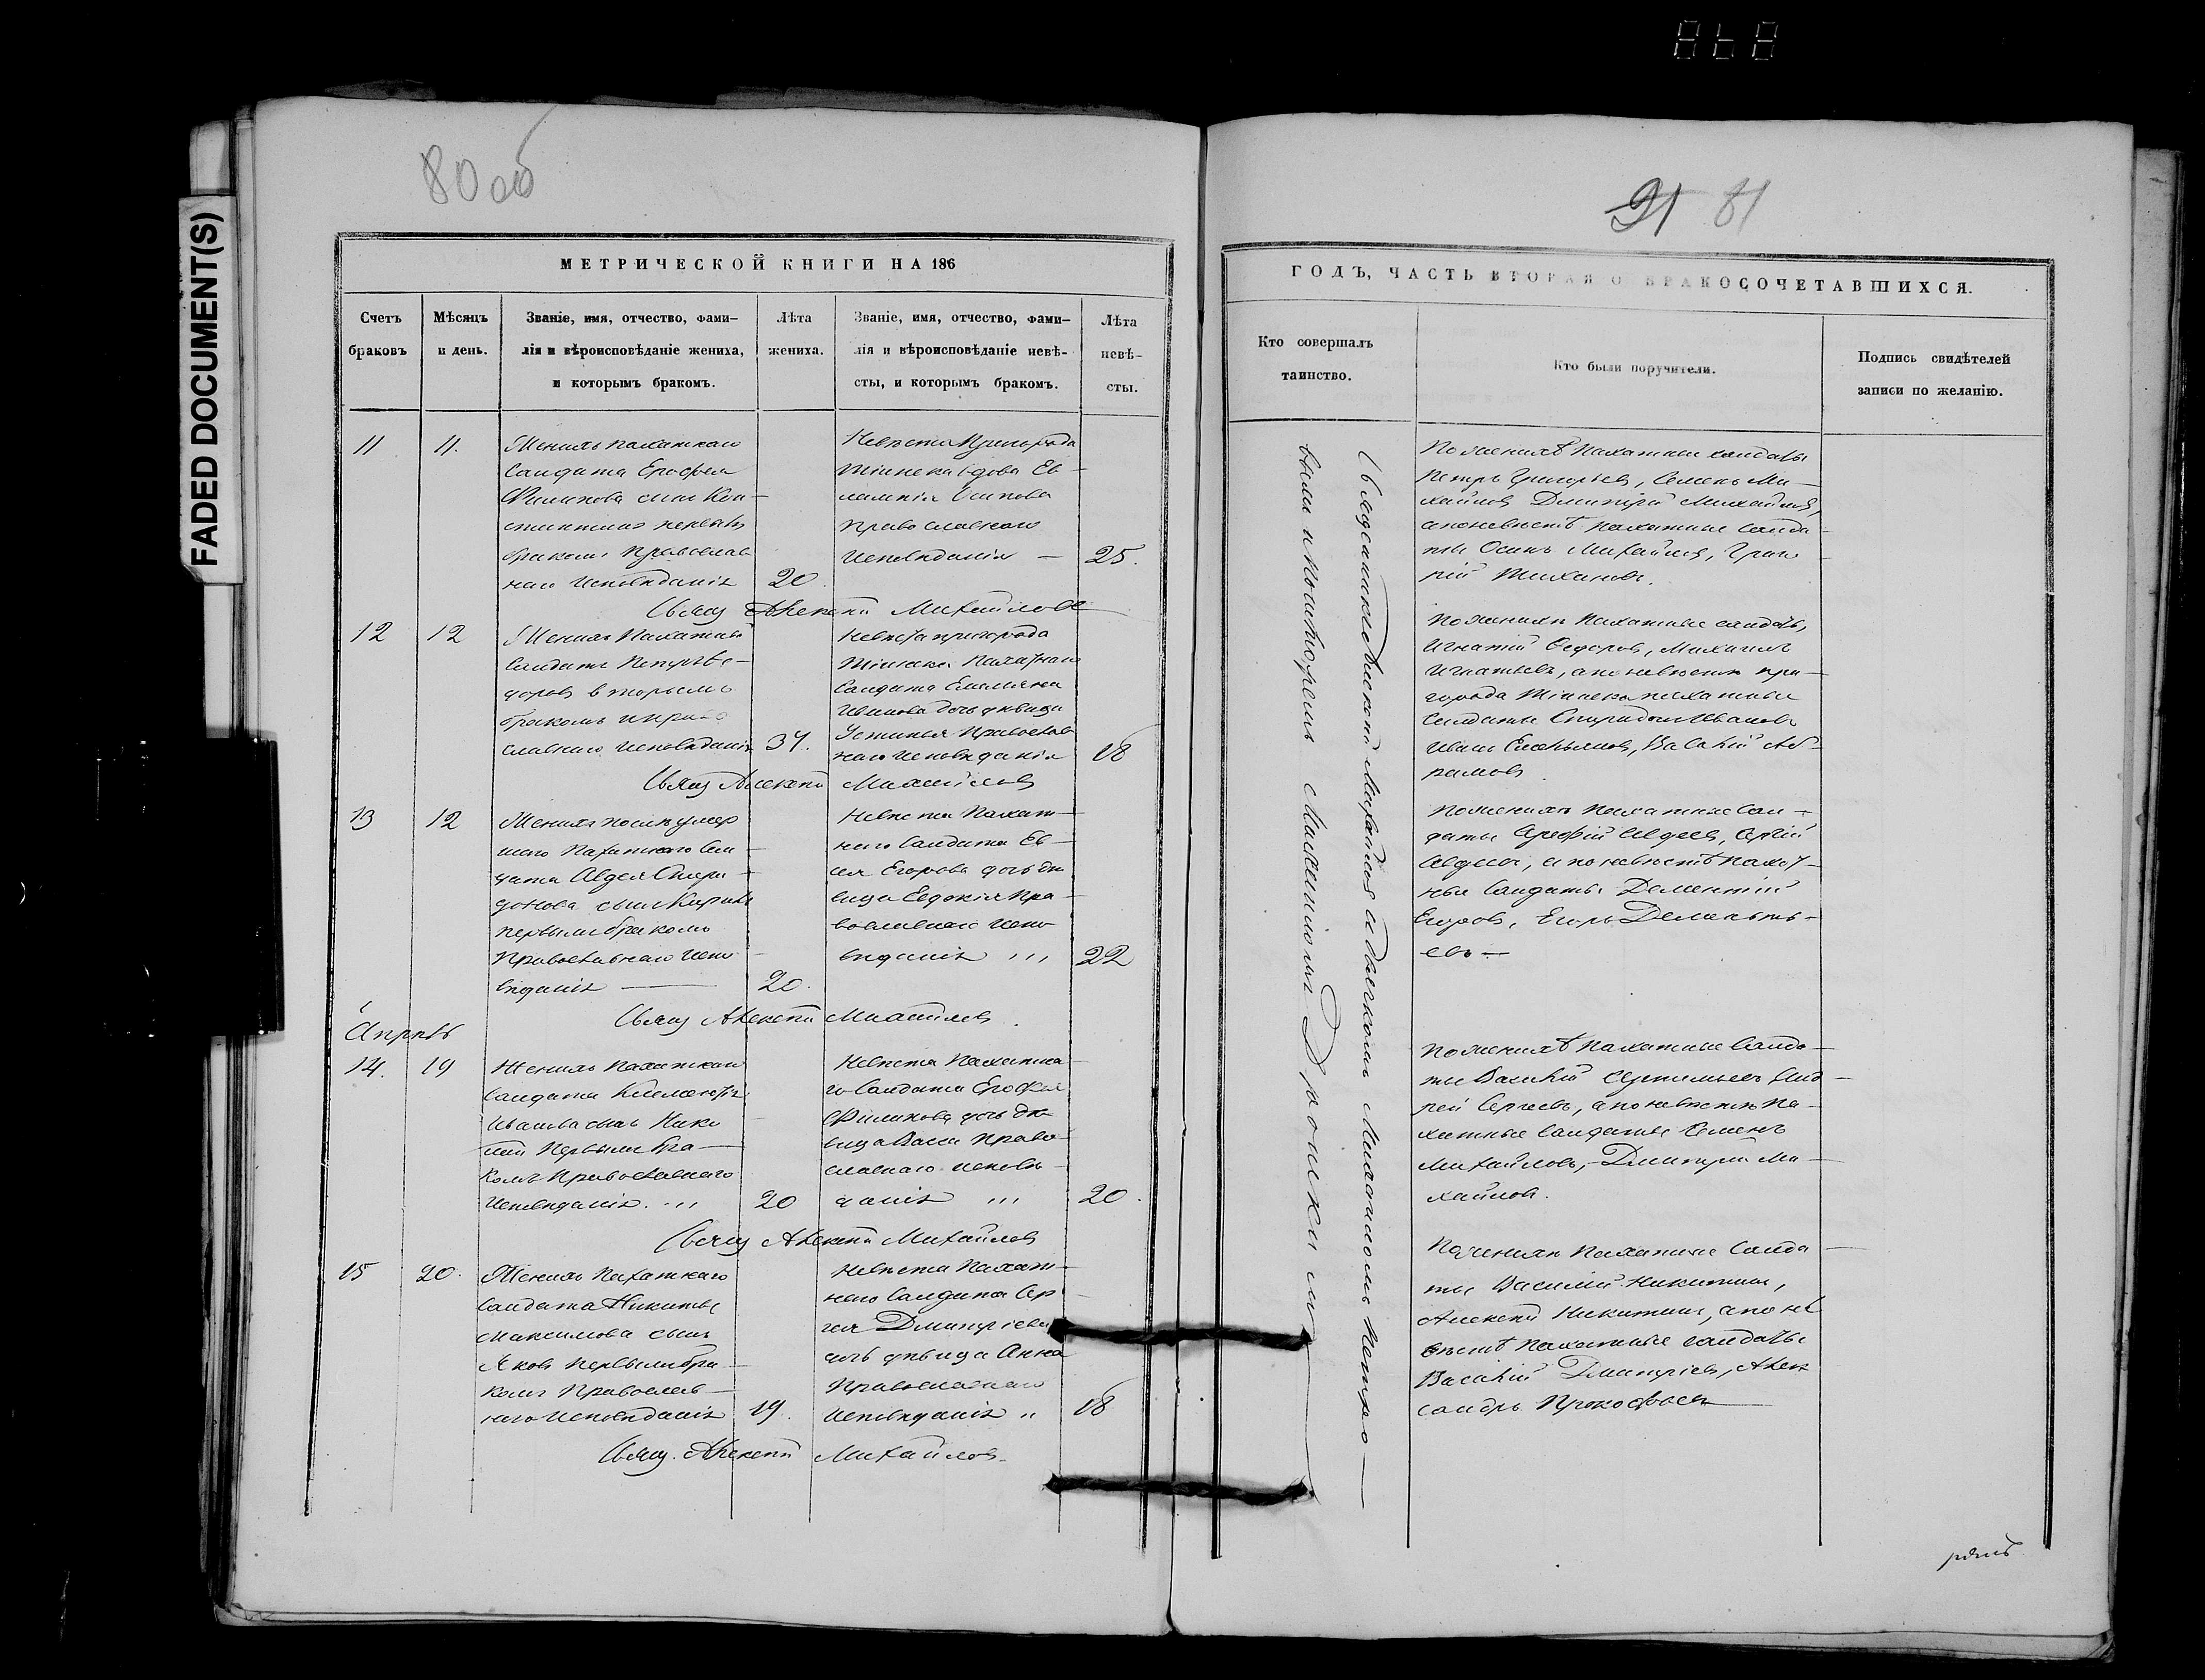 868
FADED DOCUMENT(S)
80 об
МЕТРИЧЕСКОЙ КНИГИ НА 186
Счетъ браковъ
Мѣсяцъ и день.
Званіе, имя, отчество, фами-
лія и вѣроисповѣданіе жениха,
и которымъ бракомъ.
Лѣта жениха.
Званіе, имя, отчество, фами-
лія и вѣроисповѣданіе невѣ-
сты, и которымъ бракомъ.
Лѣта
невѣ-
сты.
11
11.
Женихъ пахатнаго
Салдата Ерофея
Филипова сынъ Кон-
стантинъ первымъ
бракомъ Православ
наго Исповѣданія
20.
Невѣста Пригорода
Тіинска вдова Ев-
лампія Осипова
Православнаго
Исповѣданія —
25.
Свящ Алексѣй Михайловъ
12
12
Женихъ Пахатный
Салдатъ Петръ Ѳе-
доровъ вторымъ
бракомъ и право
славнаго исповѣданія
37.
Невѣста пригорода
Тіинска Пахатнаго
Салдата Емельяна
Иванова дочь дѣвица
Устинья Православ
наго исповѣданія
18
Свящ Алексѣй Михайловъ
13
12
Женихъ послѣ умер
шаго Пахатнаго Сал-
дата Авдея Спири-
донова сынъ Кирилъ
первымъ бракомъ
Православнаго Испо-
вѣданія —
20.
Невѣста Пахат-
наго Салдата Ев-
сея Егорова дочь дѣ
вица Евдокія Пра-
вославнаго испо-
вѣданія
22
Свящ Алексѣй Михайловъ.
Апрѣль
14.
19
Женихъ Пахатнаго
Салдата Климентія
Иванова сынъ Ники
той Первымъ бра-
комъ Православнаго
Исповѣданія.
20
Невѣста Пахатна-
го Салдата Ерофея
Филипова дочь дѣ-
вица Васса Право-
славнаго исповѣ-
данія
20.
Свящ Алексѣй Михайловъ
15
20.
Женихъ Пахатнаго
Салдата Никиты
Максимова сынъ
Яковъ Первымъ бра-
комъ Православ-
наго Исповѣданія
19.
Невѣста Пахат-
наго Салдата Сер-
гея Дмитріева
дочь дѣвица Анна
Православнаго
Исповѣданія
18
Свящ. Алексѣй Михайловъ.
91 81
ГОДЪ, ЧАСТЬ ВТОРАЯ О БРАКОСОЧЕТАВШИХСЯ.
Кто совершалъ
таинство.
Кто были поручители.
Подпись свидѣтелей
записи по желанію.
Священникъ Алексѣй Михайловъ съ дьячкомъ Михаиломъ Петро-
вымъ и пономаремъ
По женихѣ Пахатные салдаты
Петръ Григорьевъ, Семенъ Ми-
хайловъ Дмитрій Михайловъ,
а по невѣстѣ пахатные салда-
ты Осипъ Михайловъ, Григо-
рій Тихановъ.
По женихѣ Пахатные салдаты,
Игнатій Ѳедоровъ, Михаилъ
Игнатьевъ, а по невѣстѣ при-
города Тіинска пахатные
салдаты Спиридонъ Ивановъ
Иванъ Емельяновъ, Василій Аб-
рамовъ.
По женихѣ Пахатные Сал-
даты Ерофій Авдеевъ, Сергій
Авдеевъ, а по невѣстѣ пахат-
ные Салдаты Дементій
Егоровъ, Егоръ Дементь-
евъ —
По женихѣ Пахатные Салда-
ты Василій Артемьевъ Анд-
рей Сергеевъ, а по невѣстѣ Па-
хатные Салдаты Семенъ
Михайловъ, Дмитрій Ми-
хайловъ.
По женихѣ Пахатные Салда-
ты Василій Никитинъ,
Алексѣй Никитинъ, а по не
вѣстѣ Пахатные салдаты
Василій Дмитріевъ, Алек
сандръ Прокофьевъ